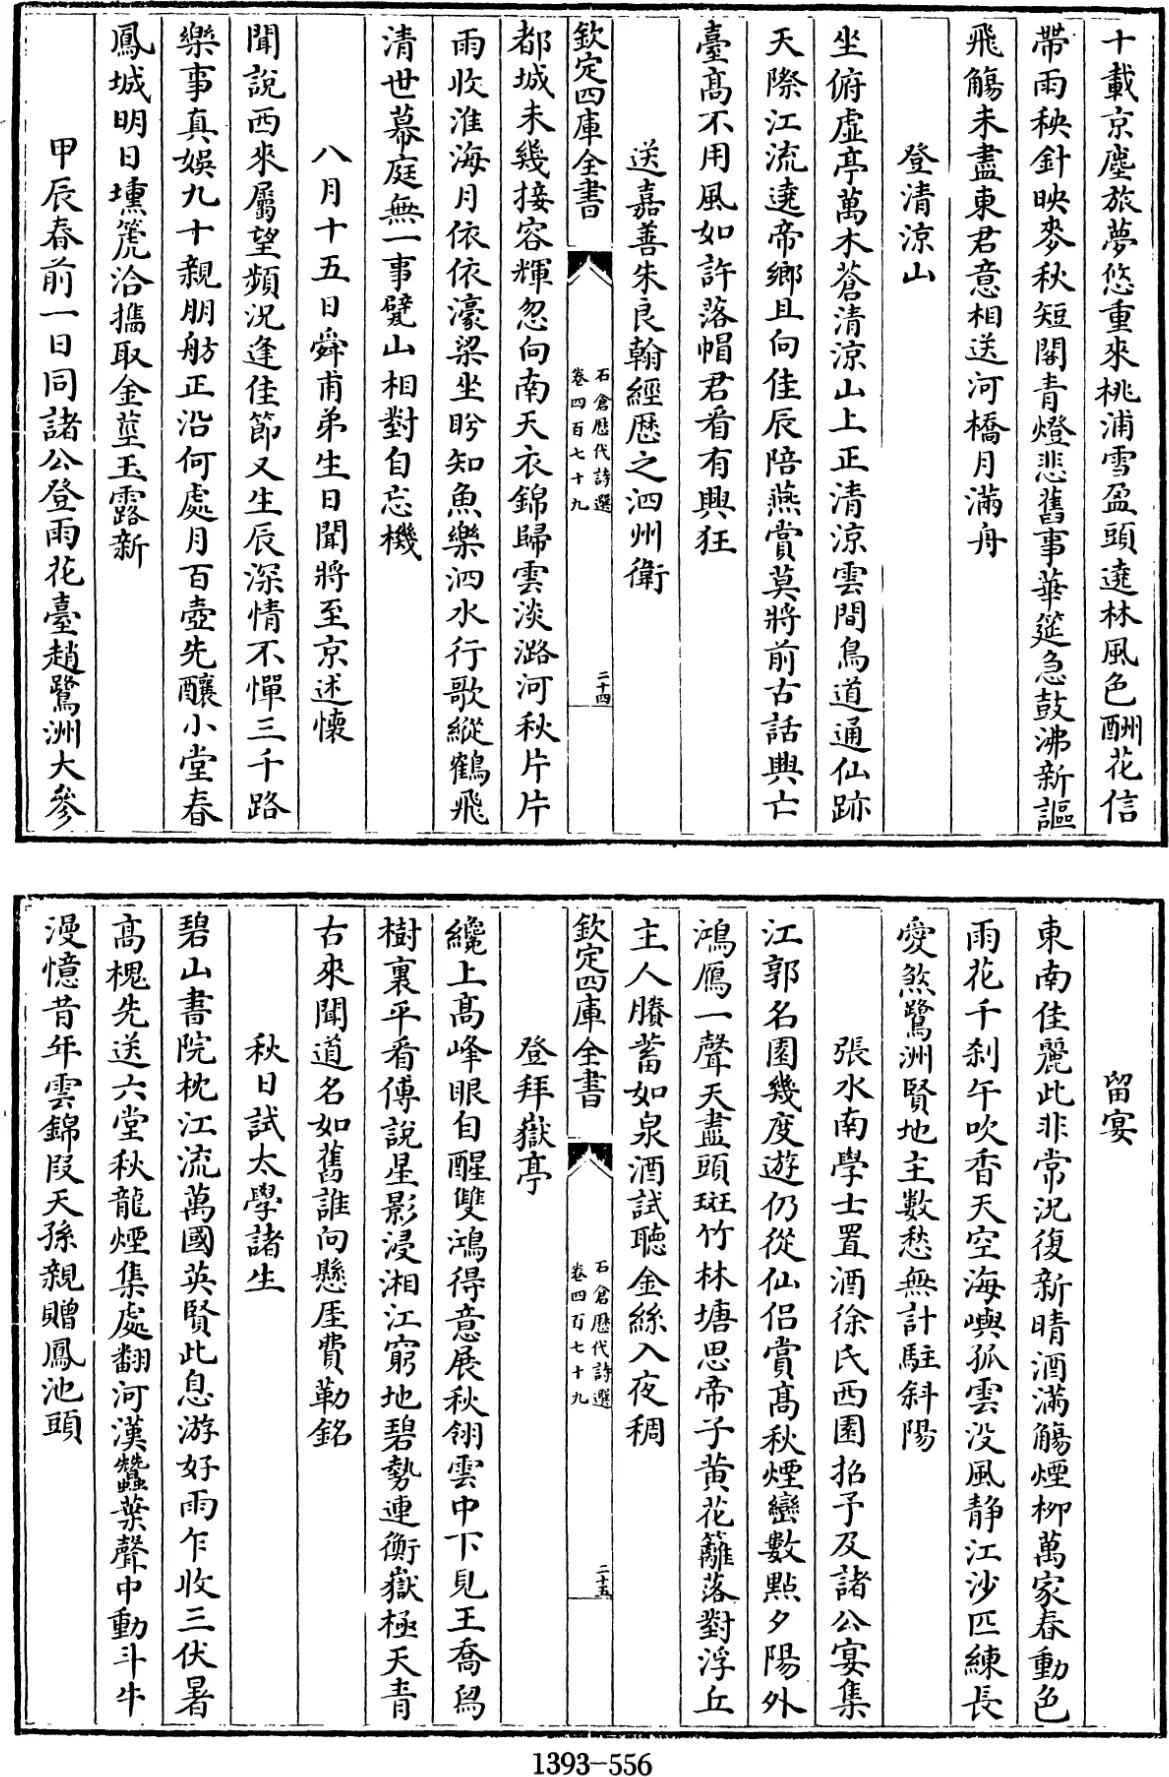 十載京塵旅夢悠重來桃浦雪盈頭遶林風色酬花信
帶雨秧針映麥秋短閣青燈悲舊事華筵急鼓沸新謳
飛觴未盡東君意相送河橋月滿舟
登清涼山
坐俯虛亭萬木蒼清涼山上正清涼雲間鳥道通仙跡
天際江流遶帝鄉且向佳辰陪燕賞莫將前古話興亡
臺高不用風如許落帽君看有興狂
送嘉善朱良翰經歷之泗州衛
欽定四庫全書
石倉歷代詩選
卷四百七十九
二十四
都城未幾接容輝忽向南天衣錦歸雲淡潞河秋片片
雨收淮海月依依濠梁坐眄知魚樂泗水行歌縱鶴飛
清世幕庭無一事甓山相對自忘機
八月十五日舜甫弟生日聞將至京述懷
聞說西來屬望頻況逢佳節又生辰深情不憚三千路
樂事真娛九十親朋舫正沿何處月百壺先釀小堂春
鳳城明日壎箎洽攜取金莖玉露新
甲辰春前一日同諸公登雨花臺趙鷺洲大參
留宴
東南佳麗此非常況復新晴酒滿觴煙柳萬家春動色
雨花千刹午吹香天空海嶼孤雲没風靜江沙匹練長
愛煞鷺洲賢地主數愁無計駐斜陽
張水南學士置酒徐氏西園招予及諸公宴集
江郭名園幾度遊仍從仙侶賞高秋煙巒數點夕陽外
鴻鴈一聲天盡頭斑竹林塘思帝子黄花籬落對浮丘
主人賸蓄如泉酒試聽金絲入夜稠
欽定四庫全書
石倉歷代詩選
卷四百七十九
二十五
登拜嶽亭
纔上高峰眼自醒雙鴻得意展秋翎雲中下見王喬舄
樹裏平看傅說星影浸湘江窮地碧勢連衡嶽極天青
古來聞道名如舊誰向懸厓費勒銘
秋日試太學諸生
碧山書院枕江流萬國英賢此息游好雨乍收三伏暑
高槐先送六堂秋龍煙集處翻河漢蠶葉聲中動斗牛
漫憶昔年雲錦段天孫親贈鳳池頭
1393-556